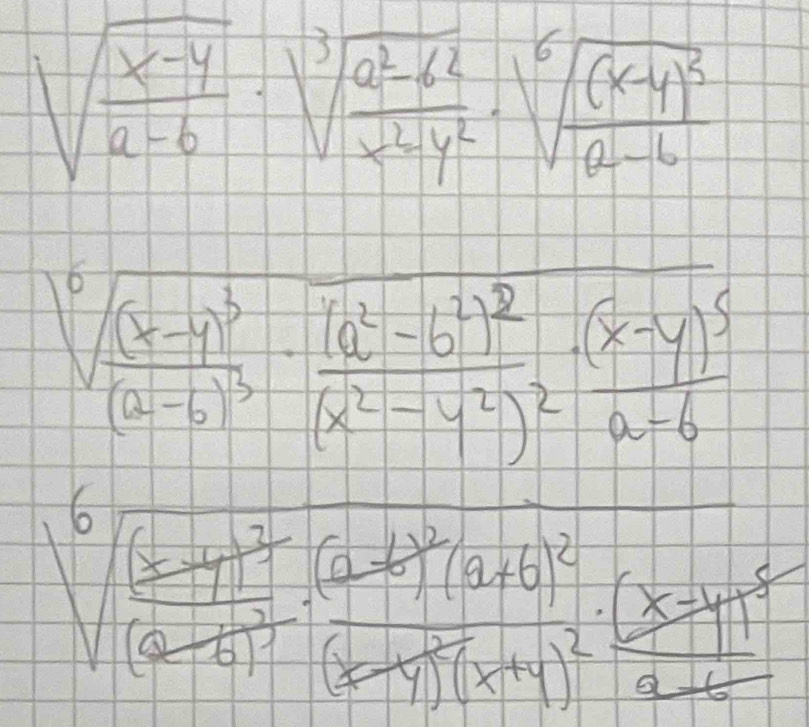 √((x-y)/(a-b)) · ∛((a²-b²)/(x²-y²)) · ⁶√((x-y)⁵/(a-b))
⁶√((x-y)³/(a-b)³ · (a²-b²)²/(x²-y²)² · (x-y)⁵/(a-b))
⁶√((x-y)³/(a-b)³ · (a-b)²(a+b)²/((x-y)²(x+y)²) · (x-y)⁵/(a-b))